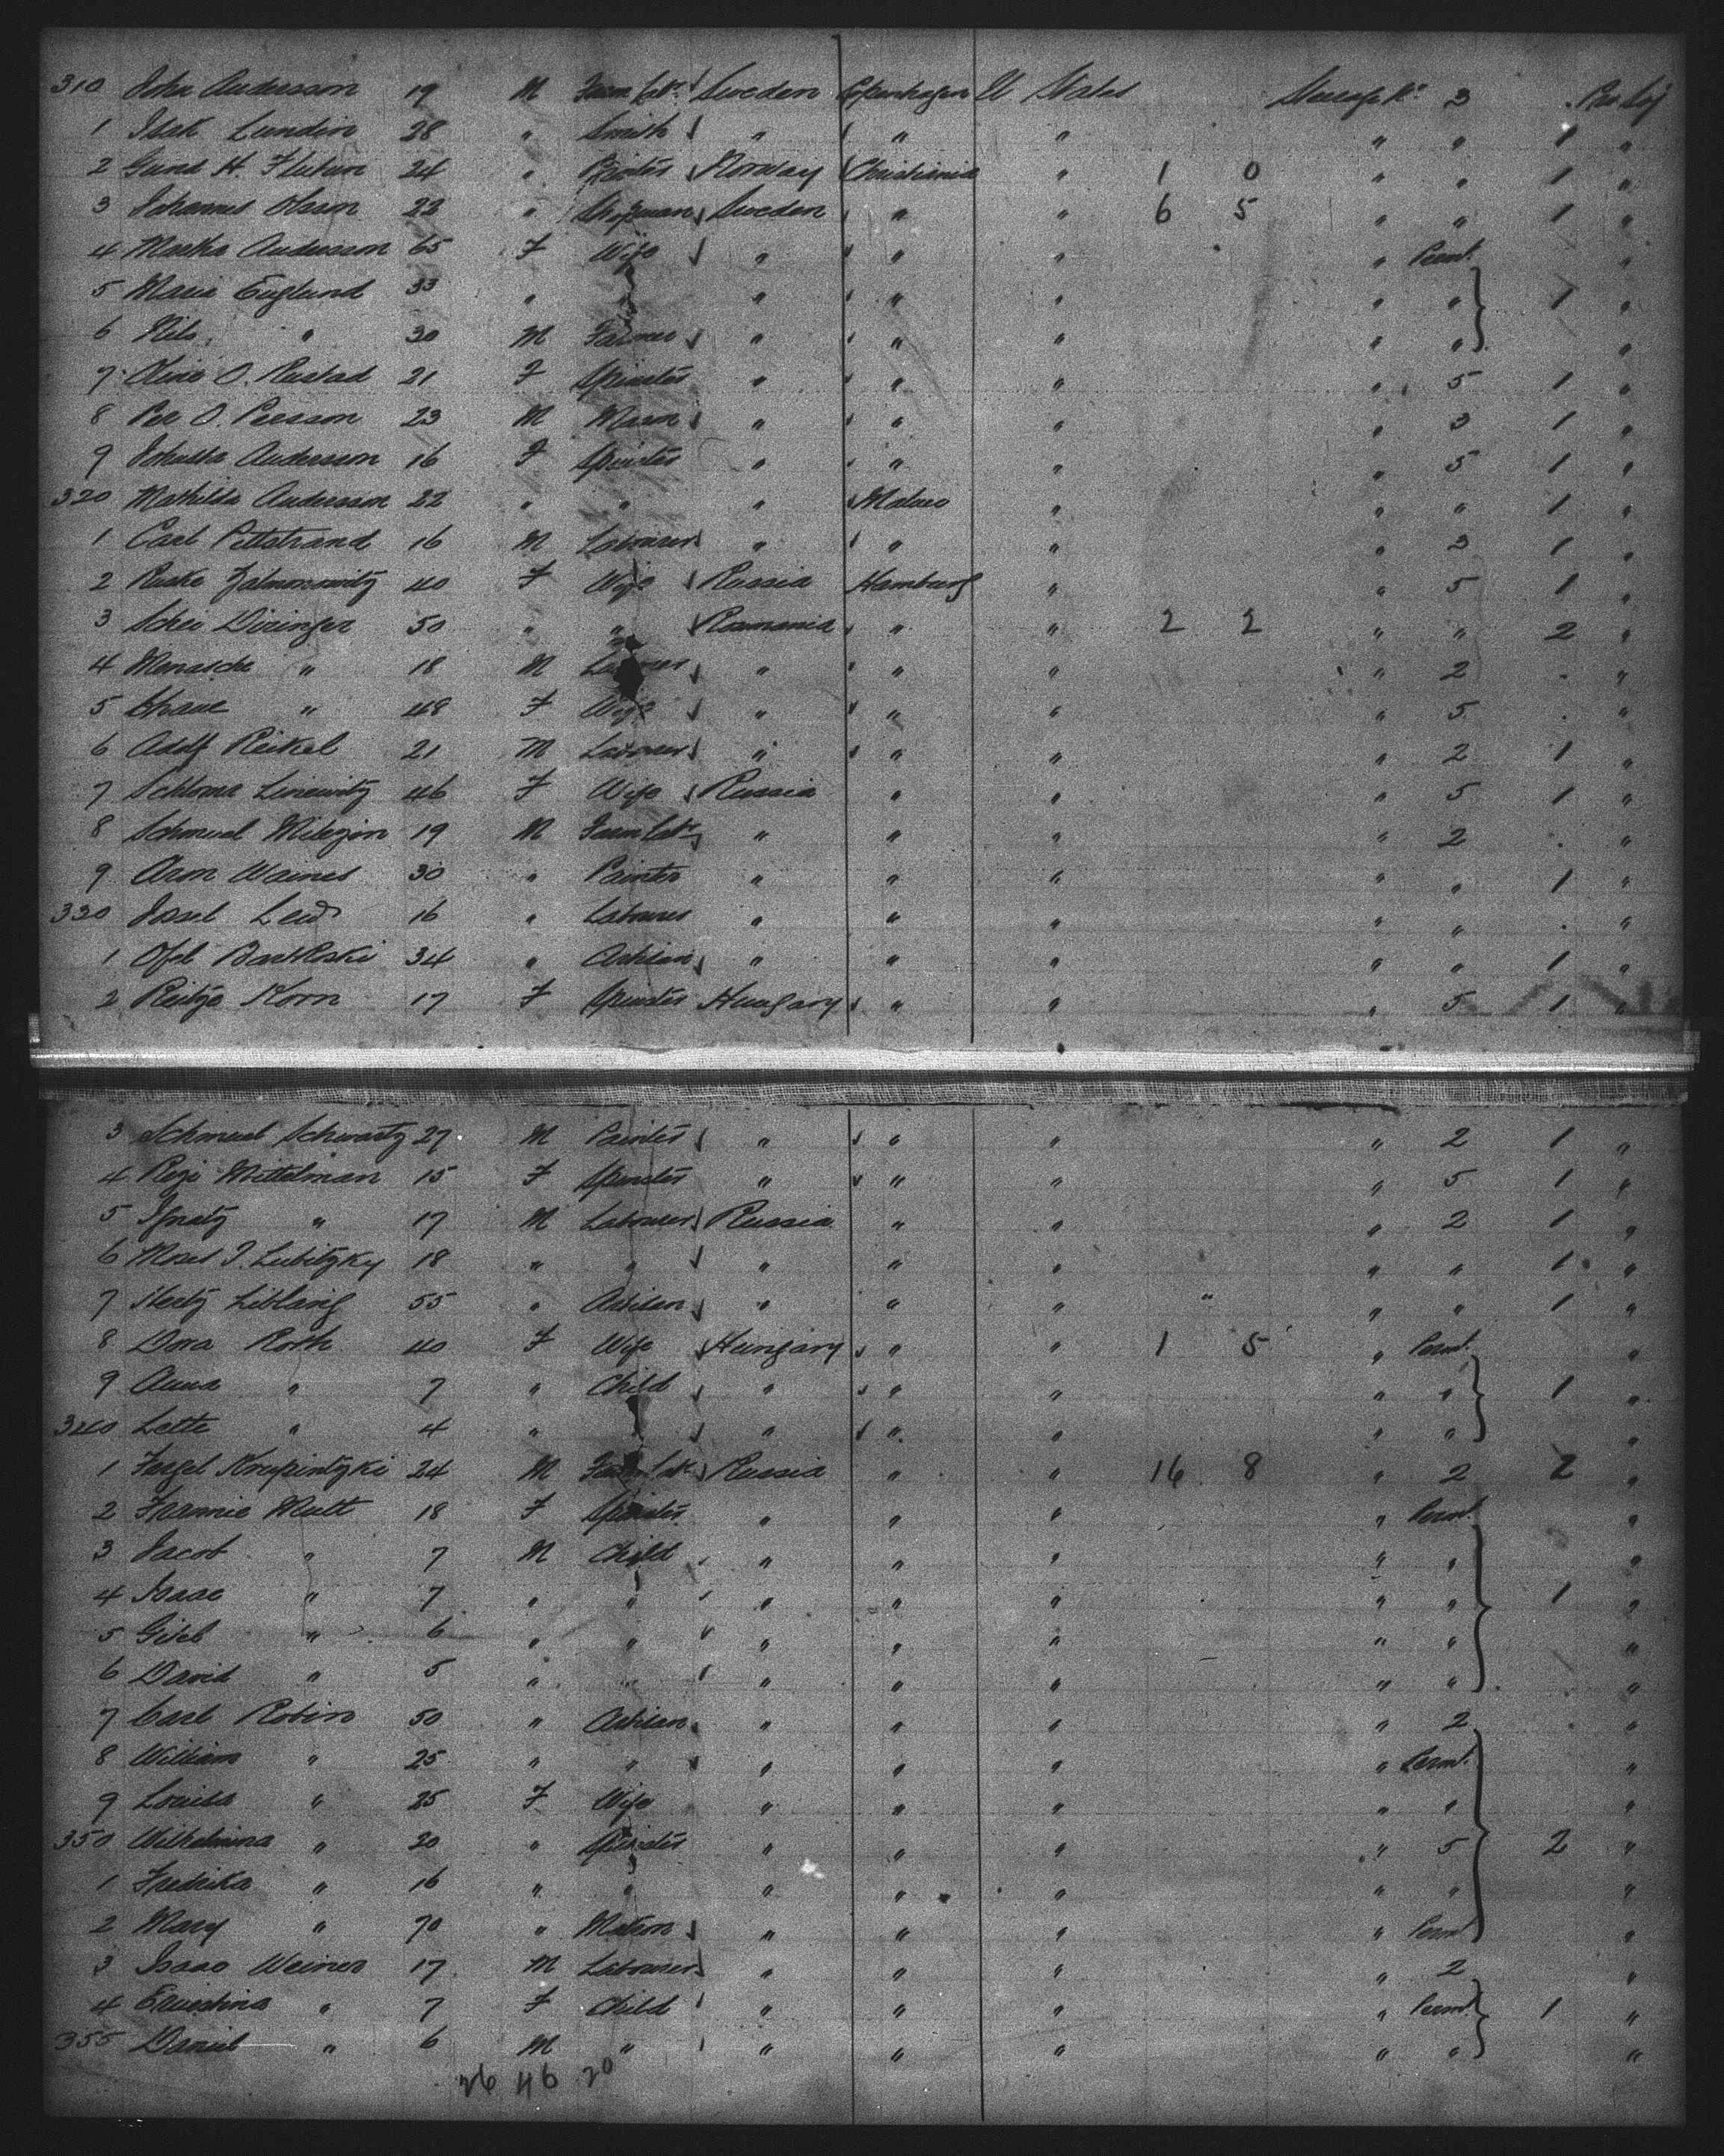 310 John Andersson 19 M Farm Lab. Sweden Copenhagen U States Steerage No 3 . Pas Soj
1 Isak Lundin 28 " Smith " " " " " 1 "
2 H. 24 " Norway Christiania " 1 0 " " 1 "
3 Johannes Olsson 22 " Sweden " " 6 5 " " 1 "
4 Martha Andersson 65 F Wife " " " " Permt. "
5 Maria Englund 33 " " " " " " " 1 "
6 Nils " 30 M Farmer " " " " " "
7 Oline O. Rustad 21 F Spinster " " " " 5 1 "
8 Per O. Persson 23 M Mason " " " " 3 1 "
9 Andersson 16 F Spinster " " " " 5 1 "
320 Mathilda Andersson 22 " " " Malmo " " " 1 "
1 Carl Pettstrand 16 M Labourer " " " " 3 1 "
2 Zalmonowitz 40 F Wife Russia Hamburg " " 5 1 "
3 Diringer 50 " " Roumania " " 2 2 " " 2 "
4 Menasche " 18 M Labourer " " " " 2 . "
5 Chane " 48 F Wife " " " " 5 . "
6 Adolf Reikel 21 M Labourer " " " " 2 1 "
7 Schloma 46 F Wife Russia " " " 5 1 "
8 Schmuel 19 M Farm Lab. " " " " 2 . "
9 Aron Waines 30 " Painter " " " " " 1 "
330 16 " Labourer " " " " " . "
1 34 " Artisan " " " " " 1 "
2 Korn 17 F Spinster Hungary " " " 5 1 "
3 Schmuel Schwartz 27 M Painter " " " " 2 1 "
4 Mittelman 15 F Spinster " " " " 5 1 "
5 Ignatz " 17 M Labourer Russia " " " 2 1 "
6 Moses I. Lubitzky 18 " " " " " " " 1 "
7 Hertz 55 " Artisan " " " " " 1 "
8 Dora Roth 40 F Wife Hungary " " 1 5 " Permt. "
9 Anna " 7 " Child " " " " " 1 "
340 Lette " 4 " " " " " " " "
1 Krupintzki 24 M Farm Lab. Russia " " 16 8 " 2 2 "
2 Frannie Mutt 18 F Spinster " " " " Permt. "
3 Jacob " 7 M Child " " " " " "
4 Isaac " 7 " " " " " " " 1 "
5 " 6 " " " " " " " "
6 David " 5 " " " " " " " "
7 Carl Robin 50 " Artisan " " " " 2 . "
8 William " 25 " " " " " " Permt. "
9 Louisa " 25 F Wife " " " " " "
350 Wilhelmina " 20 " Spinster " " " " 5 2 "
1 Fredrika " 16 " " " " " " " "
2 Mary " 70 " Matron " " " " Permt "
3 Isaac Weiner 17 M Labourer " " " " 2 "
4 Ernestina " 7 F Child " " " " Permt. 1 "
355 Daniel " 6 M " " " " " " "
26 46 20